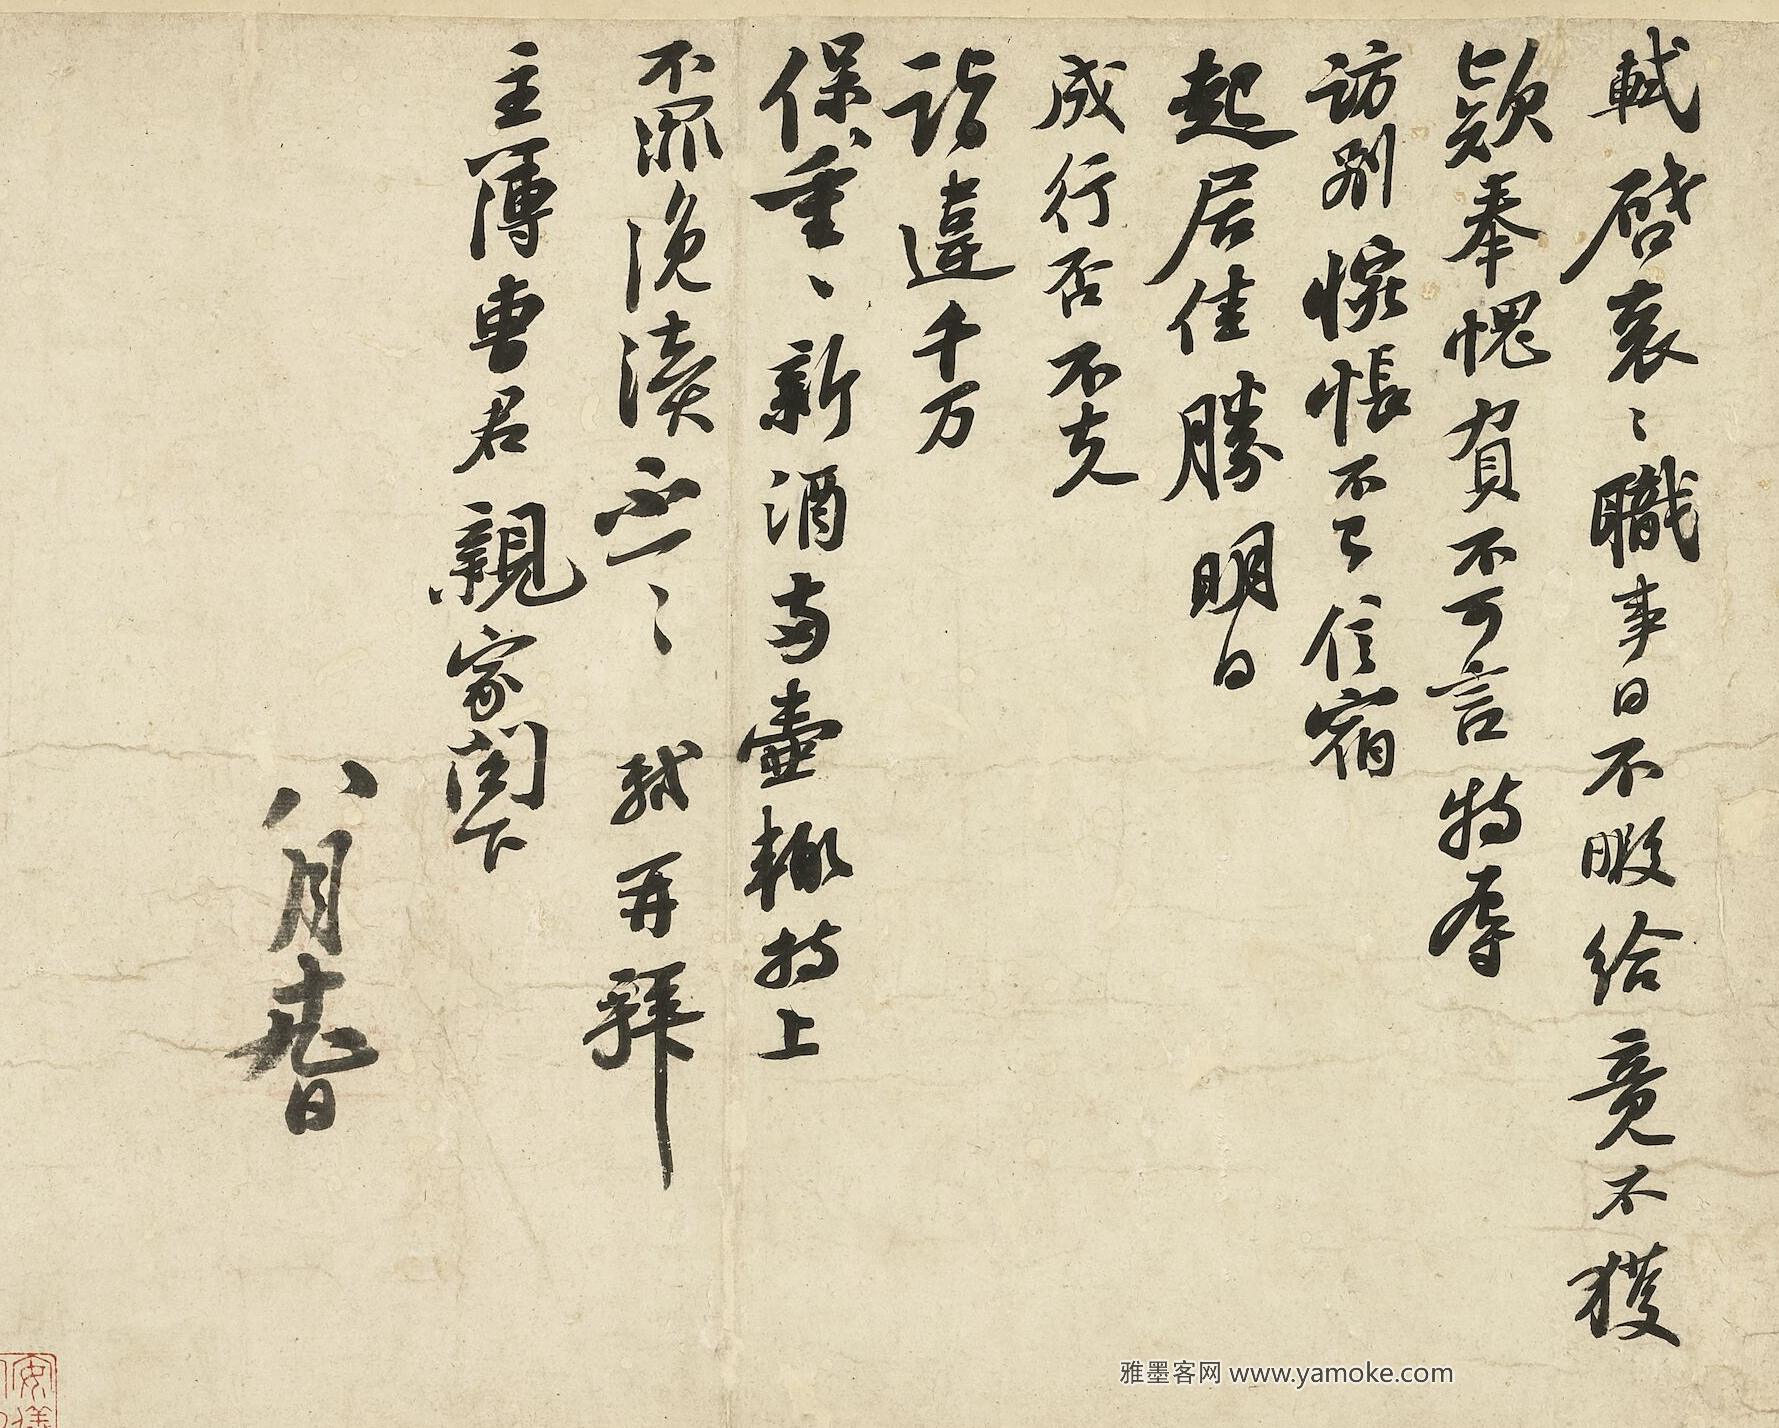 軾啓衰衰職事日不暇給竟不獲
款奉愧負不可言特辱
訪別惋悵不已信宿
起居佳勝明日
成行否不克
詣違千万
保重重新酒兩壺輒持上
不罪浼瀆不一一　軾再拜
主簿曹君親家閤下
八月　日
雅墨客网 www.yamoke.com